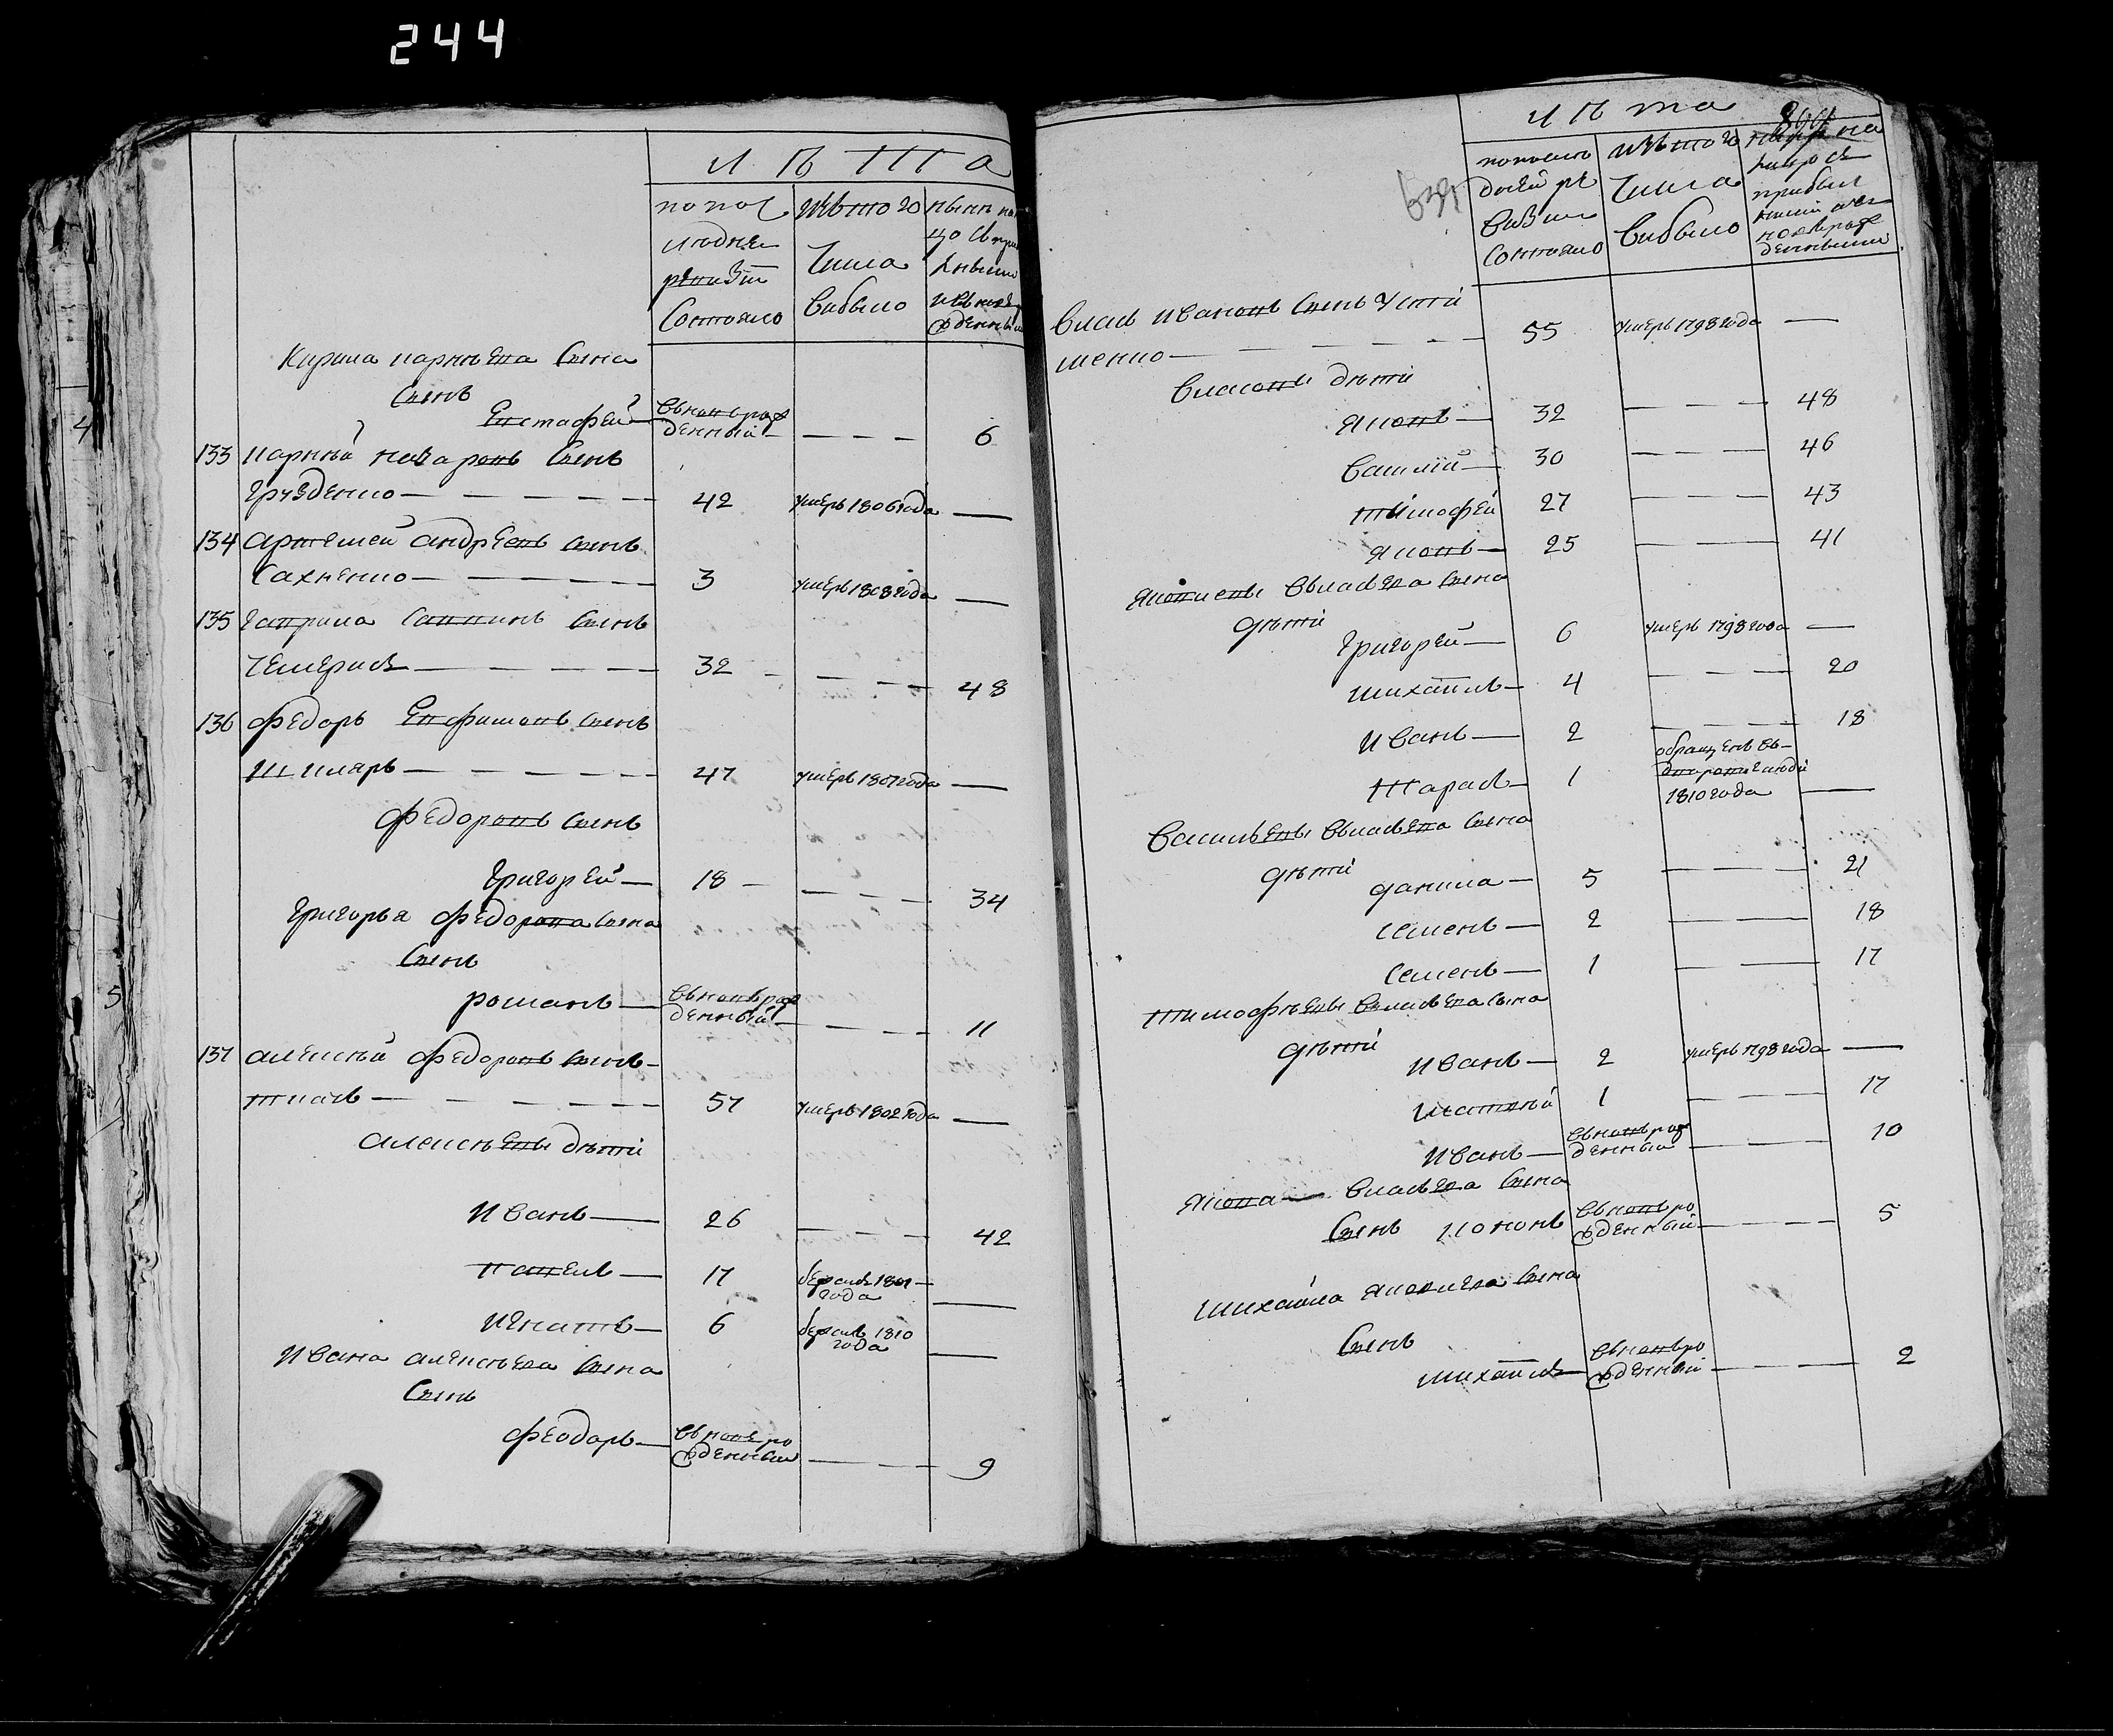 244
лѣта
по пос
ледней
ревизіи
состояло
изъ того
числа
выбыло
нынѣ на
Кирила карнѣева сына
сынъ
Евстафей — въновь рож
денный — — — — 6
133 карнѣй назаровъ сынъ
Груздєнко — — — — 42 умеръ 1806 года —
134 артемей андреевъ сынъ
Сахненко — — — — 3 умеръ 1808 года —
135 гаврила саввинъ сынъ
Чемерисъ — — — — 32 — — — 48
136 федоръ Евфимовъ сынъ
шкляръ — — — — 47 умеръ 1807 года —
федоровъ сынъ
григорей — 18 — — — — 34
григорья федорова сына
сынъ
романъ — въновь рож
денный — — — — 11
137 алексѣй федоровъ сынъ —
ткачь — — — — 57 умеръ 1802 года —
алексѣевы дѣти
иванъ — 26 — — — 42
павелъ — 17 бежалъ 1801 —
года —
игнатъ — 6 бежалъ 1810
года —
ивана алексѣева сына
сынъ
феодоръ — въновь ро
жденный — — — 9
лѣта
по после
дней ре
визіи
состояло
изъ того
числа
выбыло
власъ ивановъ сынъ усти
менко — — — — 55 умеръ 1798 года —
власовы дѣти
яковъ — 32 — — — 48
василій — 30 — — — 46
тимофей 27 — — — 43
яковъ — 25 — — 41
яковлевы власьева сына
дѣти
григорей — 6 умеръ 1798 года —
михайлъ — 4 — — — 20
иванъ — 2 — — — 18
тарасъ — 1 обращенъ въ —
дворовие люди
1810 года —
васильевы власьева сына
дѣти
данила — 5 — — — 21
семенъ — 2 — — 18
семенъ — 1 — — 17
тимофѣевы власьева сына
дѣти
иванъ — 2 умеръ 1798 года —
матвѣй 1 — — 17
иванъ — въновь рож
денный — — — 10
якова — власьева сына
сынъ кононъ въновь ро
жденный — — — 5
михайла яковлева сына
сынъ
михайлъ — въновь ро
жденный — — — 2